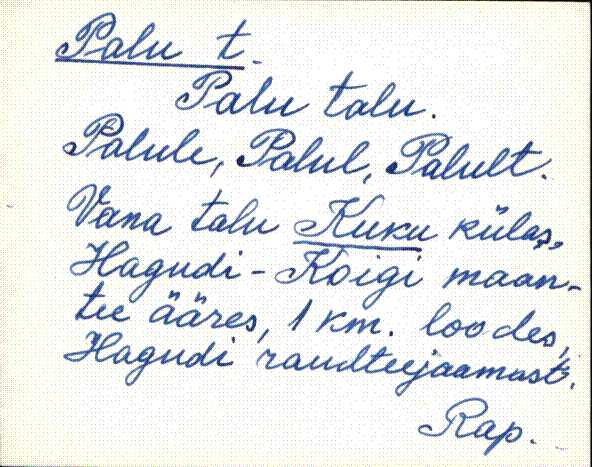 Palu t.
Palu talu.
Palule, Palul, Palult.
Vana talu Kuku külas,
Hagudi - Koigi maan-
tee ääres, 1 km. loodes,
Hagudi raudteejaamast.
Rap.